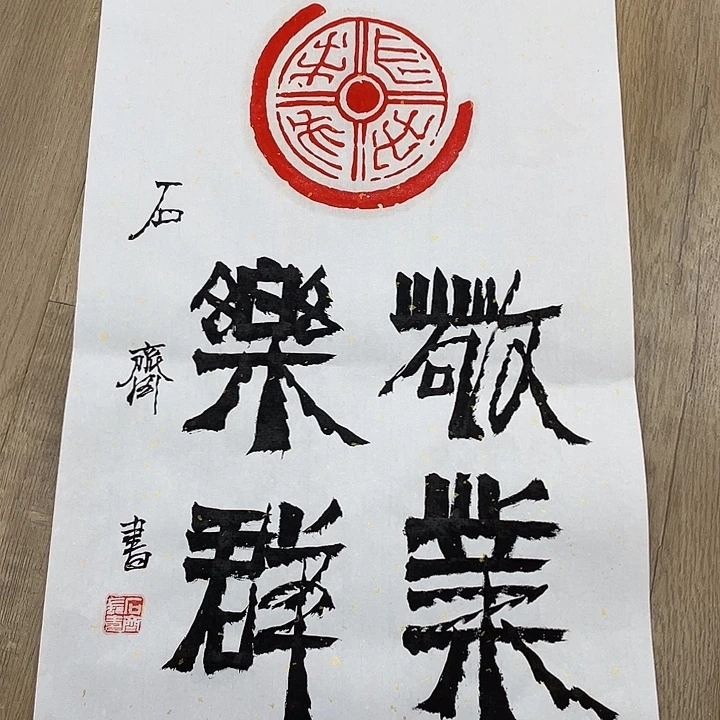 敬業
樂群
石齋書